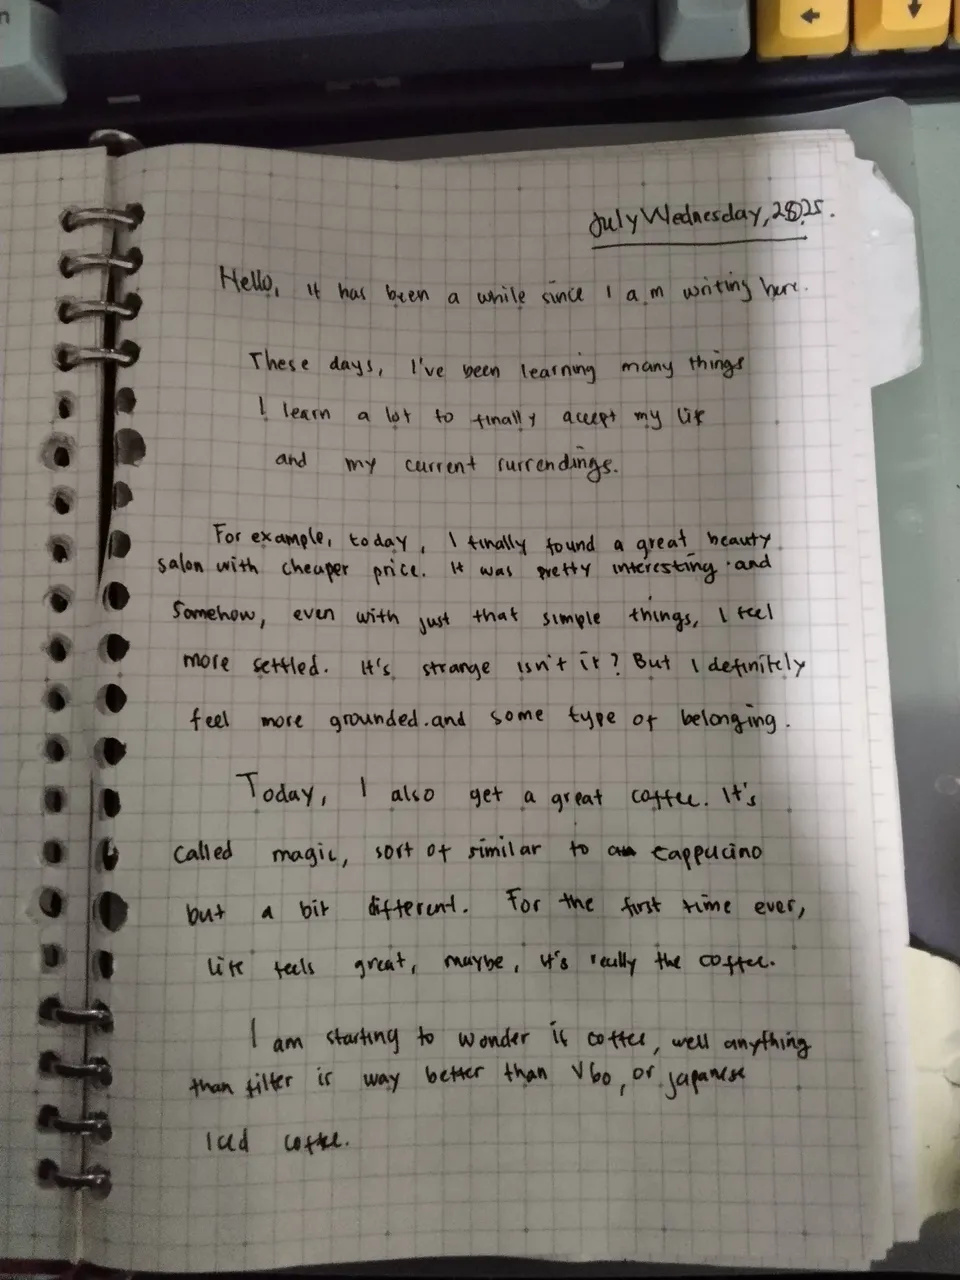 July Wednesday, 2025.
Hello, It has been a while since I am writing here.
These days, I've been learning many things
I learn a lot to finally accept my life
and my current surrendings.
For example, today, I finally found a great beauty
salon with cheaper price. It was pretty interesting and
Somehow, even with just that simple things, I feel
more settled. It's strange isn't it? But I definitely
feel more grounded. and some type of belonging.
Today, I also get a great coffee. It's
called magic, sort of similar to a cappucino
but a bit different. For the first time ever,
life feels great, maybe, it's really the coffee.
I am starting to wonder if coffee, well anything
than filter is way better than V60, or japanese
Iced coffee.